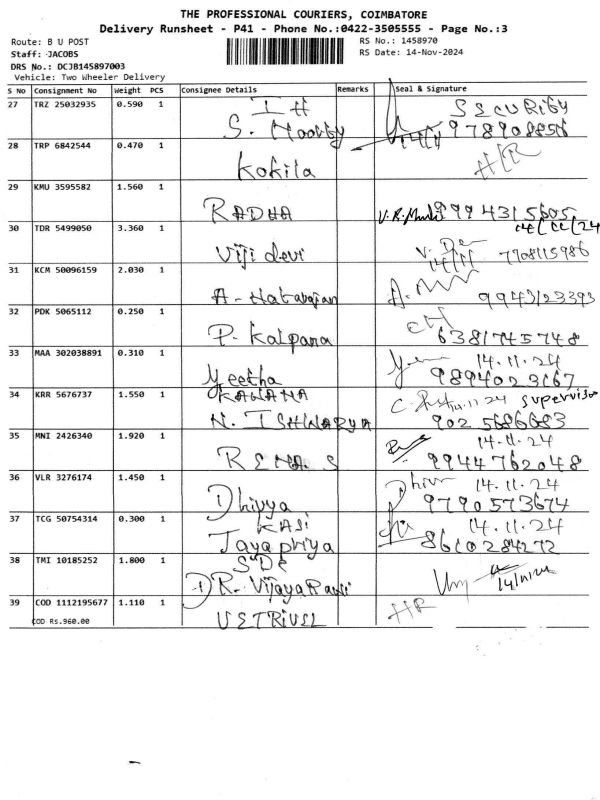 THE PROFESSIONAL COURIERS, COIMBATORE
Delivery Runsheet - P41 - Phone No.:0422-3505555 - Page No.:3
Route: B U POST
RS No.: 1458970
Staff: JACOBS
RS Date: 14-Nov-2024
DRS No.: DCJB145897003
Vehicle: Two Wheeler Delivery
S No Consignment No Weight PCS Consignee Details Remarks Seal & Signature
27 TRZ 25032935 0.590 1 I H SECURITY
S. Moorthy 14/11 978908856
28 TRP 6842544 0.470 1 HR
Kokila
29 KMU 3595582 1.560 1
RADHA 9994315605
14/11/24
30 TDR 5499050 3.360 1 V. De
Viji devi 14/11 7708115986
31 KCM 50096159 2.030 1
A. Natarajan 9943123393
32 PDK 5065112 0.250 1
P. Kalpana 6381745748
33 MAA 302038891 0.310 1 14.11.24
Geetha 9894023167
34 KRR 5676737 1.550 1 KAWANA 14.11.24 Supervisor
N. ISHWARYA 9025686683
35 MNI 2426340 1.920 1 14.11.24
RENA. S 9944762048
36 VLR 3276174 1.450 1 Dhivy 14.11.24
Dhivya 9790573674
37 TCG 50754314 0.300 1 KASI 14.11.24
Jayapriya 8610284272
38 TMI 10185252 1.800 1 SDC
DR. Vijaya Rani 14/11/24
39 COD 1112195677 1.110 1 HR
COD Rs.960.00 VETRIVEL